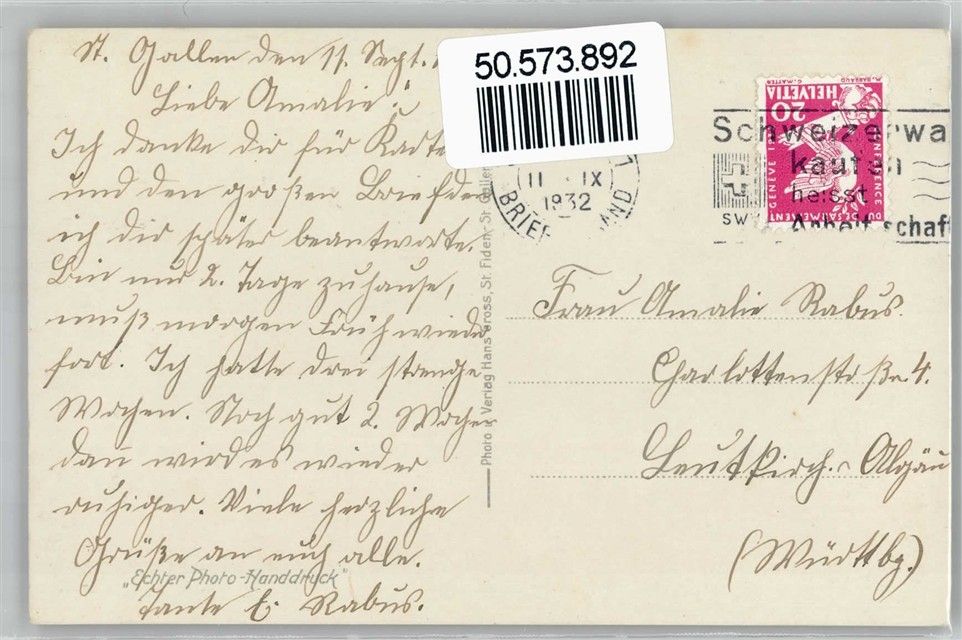 St. Gallen den 11. Sept.
Liebe Amalie!
Ich danke dir für Karte
und den großen Brief den
ich dir später beantworte.
Bin nur 2. Tage zuhause,
muß morgen Früh wieder
fort. Ich hatte drei strenge
Wochen. Noch gut 2. Wochen
dann wird es wieder
ruhiger. Viele herzliche
Grüße an euch alle.
"Echter Photo-Handdruck"
Tante E. Rabus.
Photo Verlag Hans Gross, St. Fiden, St. Gallen
50.573.892
BRIEF LAND
11 · IX
1932
HELVETIA
20
G. MATTER M. BARRAUD
GENÈVE 19
CONFÉRENCE DU DÉSARMEMENT
SW
Schweizerwa
kaufen
heisst
Arbeit schaff
Frau Amalie Rabus.
Charlottenstraße 4.
Leutkirch. Algäu
(Württbg.)